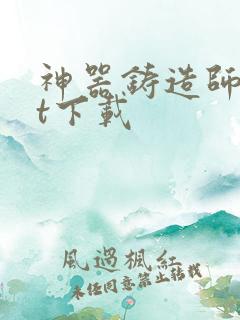 神器鋳造師
t下載
風過楓紅
未經同意禁止轉載